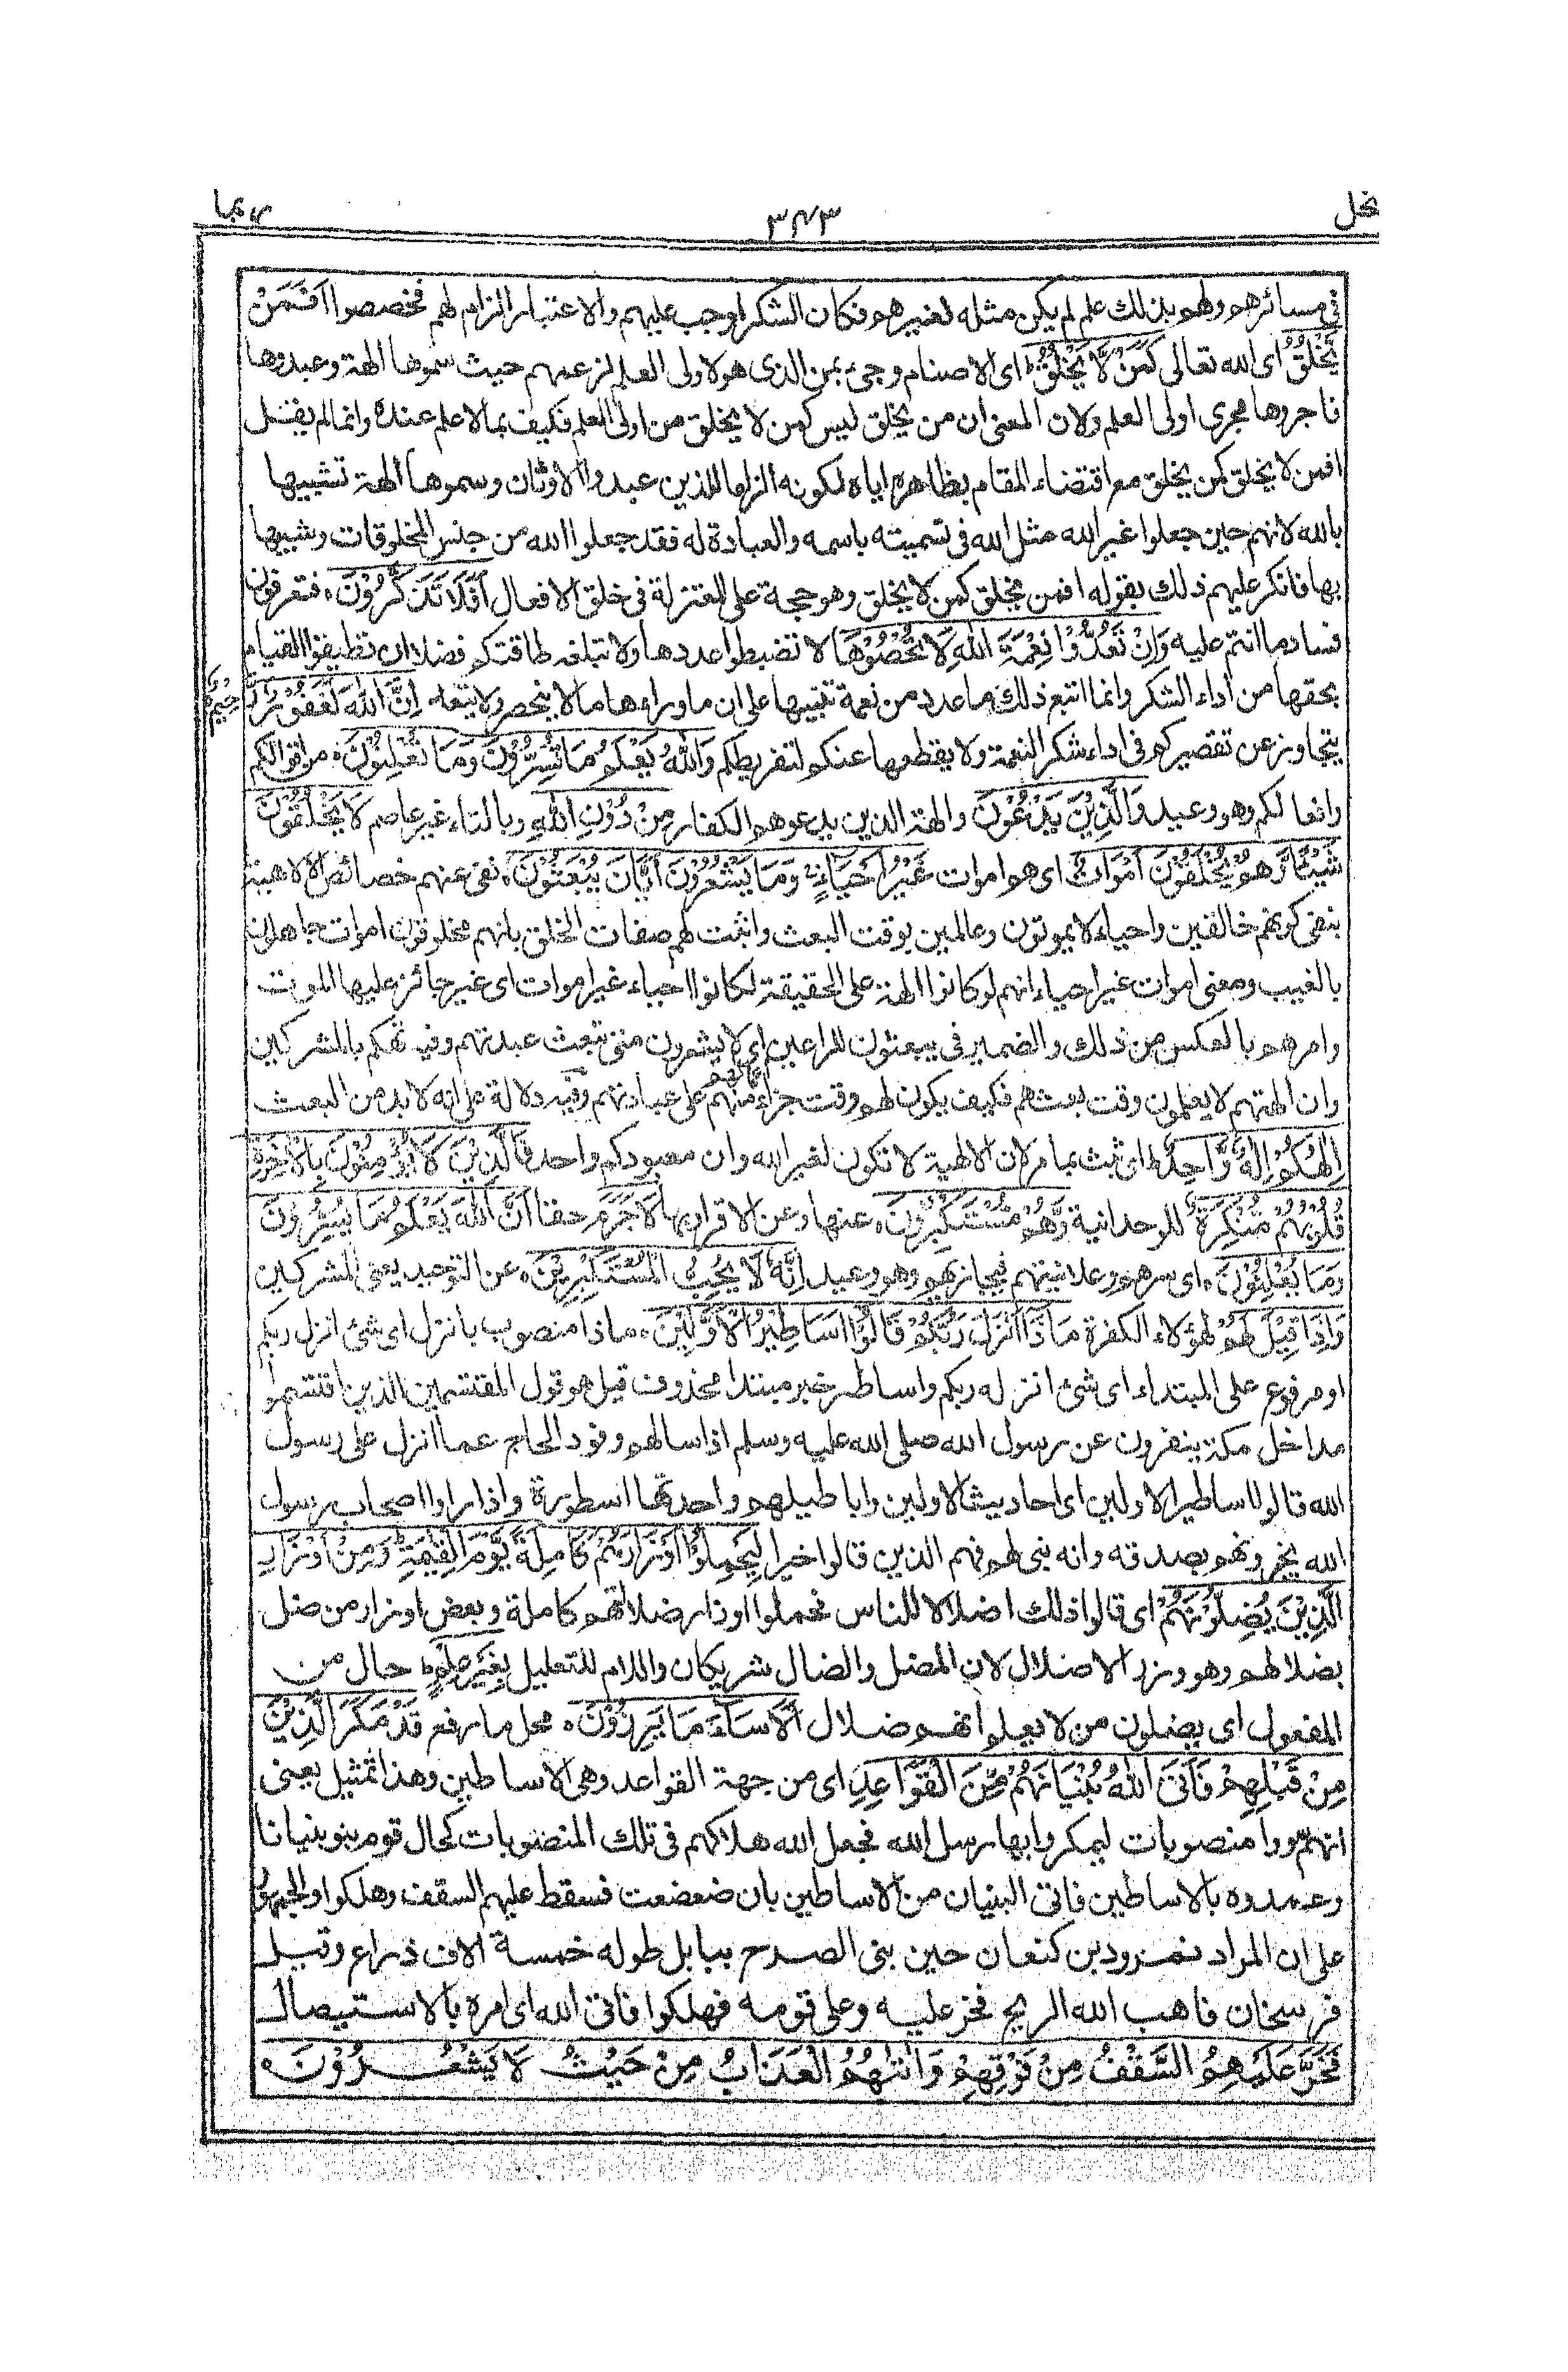 نحل
٣٤٣
ربما ١٤
في مسائرهم ولهم بذلك علم لم يكن مثله لغيرهم فكان الشكر اوجب عليهم والاعتبار الزام لهم فخصصوا اَفَمَنْ
يَّخْلُقُ اى الله تعالى كَمَنْ لَّا يَخْلُقُ ؕ اى الاصنام وجىء بمن الذى هو لاولى العلم لزعمهم حيث سموها الهة وعبدوها
فاجروها مجرى اولى العلم ولان المعنى ان من يخلق ليس كمن لا يخلق من اولى العلم فكيف بما لا علم عنده وانما لم يقل
افمن لا يخلق كمن يخلق مع اقتضاء المقام بظاهره اياه لكونه الزاما للذين عبدوا الاوثان وسموها الهة تشبيها
بالله لانهم حين جعلوا غير الله مثل الله فى تسميته باسمه والعبادة له فقد جعلوا الله من جنس المخلوقات وشبيها
بها فانكر عليهم ذلك بقوله افمن يخلق كمن لا يخلق وهو حجة على المعتزلة فى خلق الافعال اَفَلَا تَذَكَّرُوْنَ ۰ فتعرفون
فساد ما انتم عليه وَاِنْ تَعُدُّوْا نِعْمَةَ اللّٰهِ لَا تُحْصُوْهَا لا تضبطوا عددها ولا تبلغه طاقتكم فضلا ان تطيقوا القيام
بحقها من اداء الشكر وانما اتبع ذلك ما عدد من نعمة تنبيها على ان ما وراءها ما لا ينحصر ولا يتعد اِنَّ اللّٰهَ لَغَفُوْرٌ رَّحِيْمٌ
يتجاوز عن تقصيركم فى اداء شكر النعمة ولا يقطعها عنكم لتفريطكم وَاللّٰهُ يَعْلَمُ مَا تُسِرُّوْنَ وَمَا تُعْلِنُوْنَ ۰ من اقوالكم
وافعالكم وهو وعيد وَالَّذِيْنَ يَدْعُوْنَ والهة الذين يدعوهم الكفار مِنْ دُوْنِ اللّٰهِ وبالتاء غير عاصم لَا يَخْلُقُوْنَ
شَيْئًا وَّهُمْ يُخْلَقُوْنَ اَمْوَاتٌ اى هم اموات غَيْرُ اَحْيَاءٍ وَمَا يَشْعُرُوْنَ اَيَّانَ يُبْعَثُوْنَ ۰ نفى عنهم خصائص الالاهية
بنفى كونهم خالقين واحياء لا يموتون وعالمين بوقت البعث واثبت لهم صفات الخلق بانهم مخلوقون اموات جاهلون
بالغيب ومعنى اموات غير احياء انهم لو كانوا الهة على الحقيقة لكانوا احياء غير اموات اى غير جائز عليها الموت
وامرهم بالعكس من ذلك والضمير فى يبعثون للداعين اى لا يشعرون متى تبعث عبدتهم وفيه تهكم بالمشركين
وان الهتهم لا يعلمون وقت بعثهم فكيف يكون لهم وقت جزاء اعمالهم منهم على عبادتهم وفيه دلالة على انه لا بد من البعث
اِلٰهُكُمْ اِلٰهٌ وَّاحِدٌ ؕ اى ثبث بما مر لان الالهية لا تكون لغير الله وان معبودكم واحد فَالَّذِيْنَ لَا يُؤْمِنُوْنَ بِالْاٰخِرَةِ
قُلُوْبُهُمْ مُّنْكِرَةٌ للوحدانية وَّهُمْ مُّسْتَكْبِرُوْنَ ۰ عنها وعن الاقرار بها لَا جَرَمَ حقا اَنَّ اللّٰهَ يَعْلَمُ مَا يُسِرُّوْنَ
وَمَا يُعْلِنُوْنَ ۰ اى سرهم وعلانيتهم فيجازيهم وهو وعيد اِنَّهٗ لَا يُحِبُّ الْمُسْتَكْبِرِيْنَ ۰ عن التوحيد يعنى المشركين
وَاِذَا قِيْلَ لَهُمْ لهؤلاء الكفرة مَا ذَا اَنْزَلَ رَبُّكُمْ قَالُوْا اَسَاطِيْرُ الْاَوَّلِيْنَ ۰ ماذا منصوب بانزل اى شئ انزل ربكم
او مرفوع على المبتداء اى شئ انزله ربكم واساطير خبر مبتدا محذوف قيل هو قول المقتسمين الذين اقتسموا
مداخل مكة ينفرون عن رسول الله صلى الله عليه وسلم اذا سالهم وفود الحاج عما انزل على رسول
الله قالوا اساطير الاولين اى احاديث الاولين واباطيلهم واحدتها اسطورة واذا راوا اصحاب رسول
الله يخبرونهم بصدقه وانه نبى لهم فهم الذين قالوا خيرا لِيَحْمِلُوْا اَوْزَارَهُمْ كَامِلَةً يَّوْمَ الْقِيٰمَةِ ۙ وَمِنْ اَوْزَارِ
الَّذِيْنَ يُضِلُّوْنَهُمْ اى قالوا ذلك اضلالا للناس فحملوا اوزار ضلالتهم كاملة وبعض اوزار من ضل
بضلالهم وهو وزر الاضلال لان المضل والضال شريكان واللام للتعليل بِغَيْرِ عِلْمٍ ؕ حال من
المفعول اى يضلون من لا يعلم انهم ضلال اَلَا سَآءَ مَا يَزِرُوْنَ ۰ محل ما رفع قَدْ مَكَرَ الَّذِيْنَ
مِنْ قَبْلِهِمْ فَاَتَى اللّٰهُ بُنْيَانَهُمْ مِّنَ الْقَوَاعِدِ اى من جهة القواعد وهى الاساطين وهذا تمثيل يعنى
انهم سووا منصوبات ليمكروا بها رسل الله فجعل الله هلاكهم فى تلك المنصوبات كحال قوم بنو بنيانا
وعمدوه بالاساطين فاتى البنيان من الاساطين بان ضعضعت فسقط عليهم السقف وهلكوا والجمهور
على ان المراد نمرود بن كنعان حين بنى الصرح ببابل طوله خمسة الاف ذراع وقيل
فرسخان فاهب الله الريح فخر عليه وعلى قومه فهلكوا فاتى الله اى امره بالاستيصال
فَخَرَّ عَلَيْهِمُ السَّقْفُ مِنْ فَوْقِهِمْ وَاَتٰىهُمُ الْعَذَابُ مِنْ حَيْثُ لَا يَشْعُرُوْنَ ۰